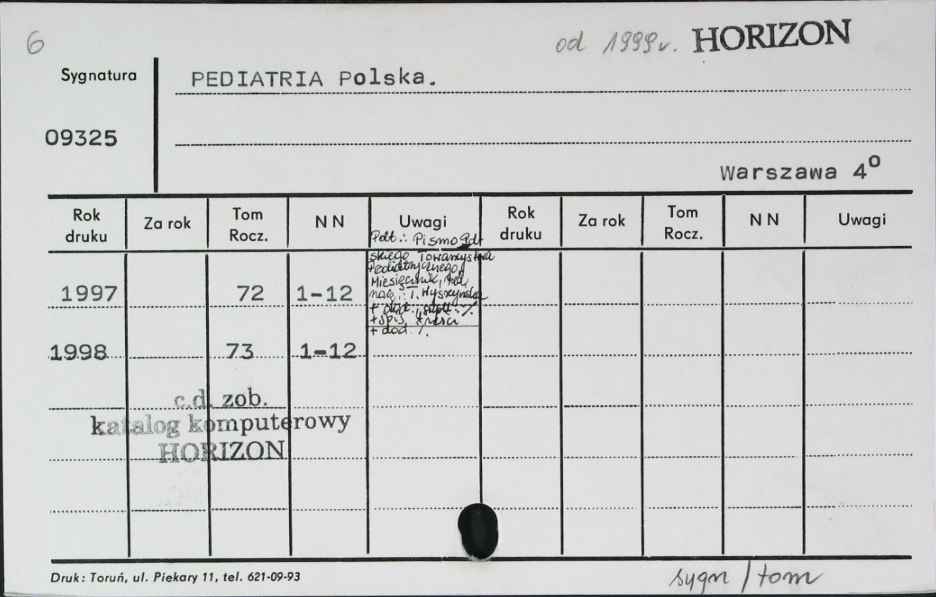 6
od 1999r. HORIZON
Sygnatura
PEDIATRIA Polska.
09325
Warszawa 4⁰
Rok druku Za rok Tom Rocz. N N Uwagi Rok druku Za rok Tom Rocz. N N Uwagi
Pdt.: Pismo Pol
skiego Towarzystwa
Pediatrycznego,
Miesięcznik, Red.
nacz.: T. Wyszyńska
1997 72 1-12
+ dod.
+ spis treści
+ dod. %.
1998 73 1-12
c.d. zob.
katalog komputerowy
HORIZON
Druk: Toruń, ul. Piekary 11, tel. 621-09-93
sygn / tom